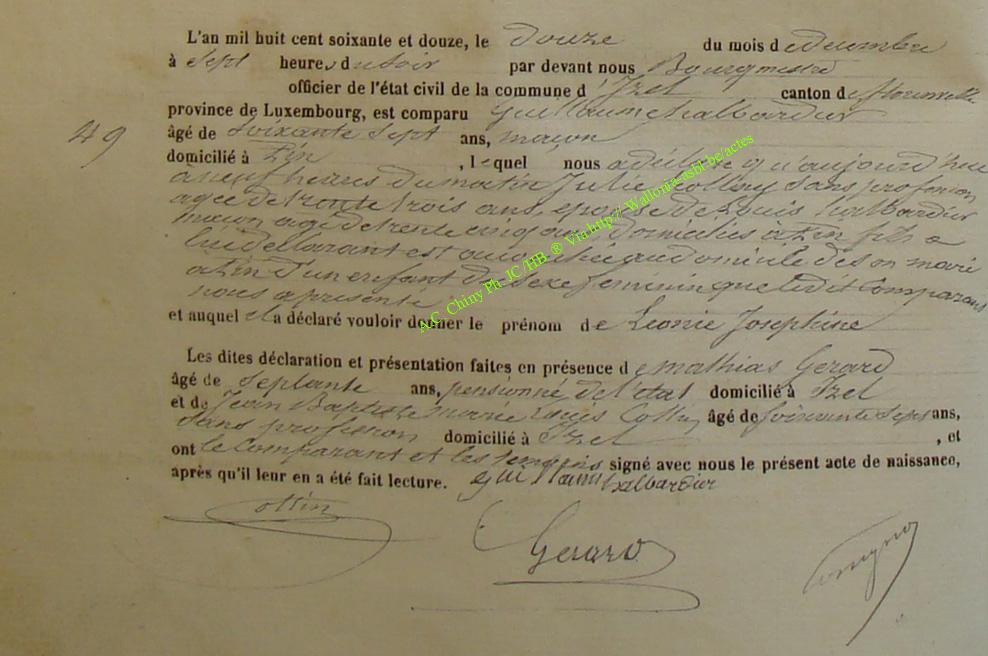 L'an mil huit cent soixante et douze, le douze du mois de décembre
à sept heures du soir par devant nous Bourgmestre
officier de l'état civil de la commune d'Izel canton de florenville
province de Luxembourg, est comparu Guillaume halbardier
49
âgé de soixante sept ans, maçon
domicilié à Pin, lequel nous a déclaré qu'aujourd'hui
a neuf heures du matin Julie Collin sans profession
agée de trente trois ans, epouse de Louis halbardier
maçon agé de trente cinq ans, domicilies a Pin fils a
lui declarant est accouchée au domicile de son mari
a Pin d'un enfant du sexe féminin que ledit Comparant
nous a présenté
et auquel il a déclaré vouloir donner le prénom de Leonie Josephine
Les dites déclaration et présentation faites en présence de mathias Gerard
âgé de septante ans, pensionné de l'état domicilié à Izel
et de Jean Baptiste marie Collin âgé de soixante sept ans,
sans profession domicilié à Izel, et
ont le Comparant et les temoins signé avec nous le présent acte de naissance,
après qu'il leur en a été fait lecture. guillaum halbardier
Collin
Gerard
A.C. Chiny Ph. JC /HB ® Via http:// Wallonia-asbl-be/actes